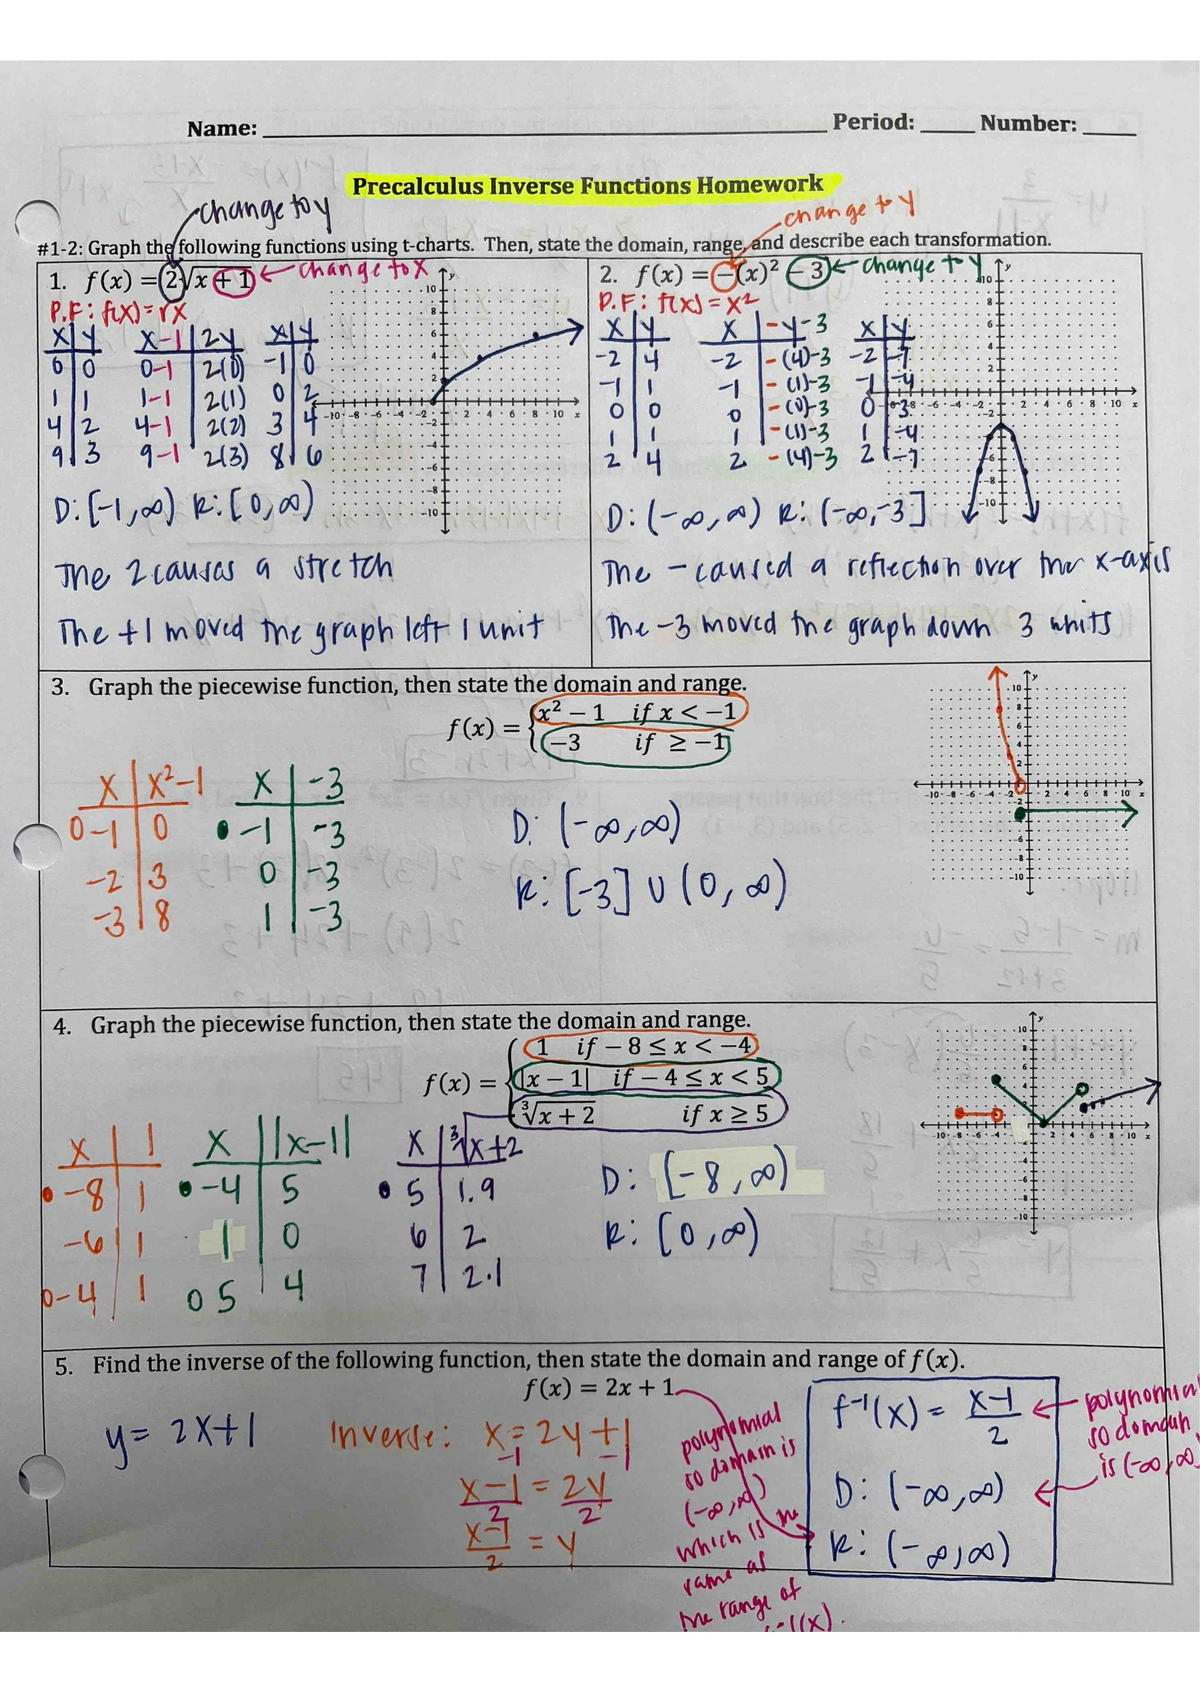 Name: ____ Period: ____ Number: ____
Precalculus Inverse Functions Homework
change to y
change to y
#1-2: Graph the following functions using t-charts. Then, state the domain, range, and describe each transformation.
1. f(x) = 2√x + 1 ← change to x
P.F: f(x) = √x
x | y   x-1 | 2y   x | y
0 | 0   0-1 | 2(0)   -1 | 0
1 | 1   1-1 | 2(1)   0 | 2
4 | 2   4-1 | 2(2)   3 | 4
9 | 3   9-1 | 2(3)   8 | 6
D: [-1, ∞) R: [0, ∞)
The 2 causes a stretch
The +1 moved the graph left 1 unit
2. f(x) = -(x)² - 3 ← change to y
P.F: f(x) = x²
x | y   x | -y-3   x | y
-2 | 4   -2 | -(4)-3   -2 | -7
-1 | 1   -1 | -(1)-3   -1 | -4
0 | 0   0 | -(0)-3   0 | -3
1 | 1   1 | -(1)-3   1 | -4
2 | 4   2 | -(4)-3   2 | -7
D: (-∞, ∞) R: (-∞, -3]
The - caused a reflection over the x-axis
The -3 moved the graph down 3 units
3. Graph the piecewise function, then state the domain and range.
f(x) = { x² − 1 if x < −1
−3 if ≥ −1
x | x²-1   x | -3
0 -1 | 0   • -1 | -3
-2 | 3   0 | -3
-3 | 8   1 | -3
D: (-∞, ∞)
R: [-3] ∪ (0, ∞)
4. Graph the piecewise function, then state the domain and range.
f(x) = { 1 if − 8 ≤ x < −4
|x − 1| if − 4 ≤ x < 5
∛x + 2 if x ≥ 5
x | 1   x | |x-1|   x | ∛x+2
• -8 | 1   • -4 | 5   • 5 | 1.9
-6 | 1   1 | 0   6 | 2
0 -4 | 1   0 5 | 4   7 | 2.1
D: [-8, ∞)
R: [0, ∞)
5. Find the inverse of the following function, then state the domain and range of f(x).
f(x) = 2x + 1
y = 2x+1
Inverse: x = 2y + 1
-1 -1
x-1 = 2y
2 2
x-1/2 = y
polynomial
so domain is
(-∞, ∞)
which is the
same as
the range of
f-1(x).
f-1(x) = x-1/2
D: (-∞, ∞)
R: (-∞, ∞)
polynomial
so domain
is (-∞, ∞)